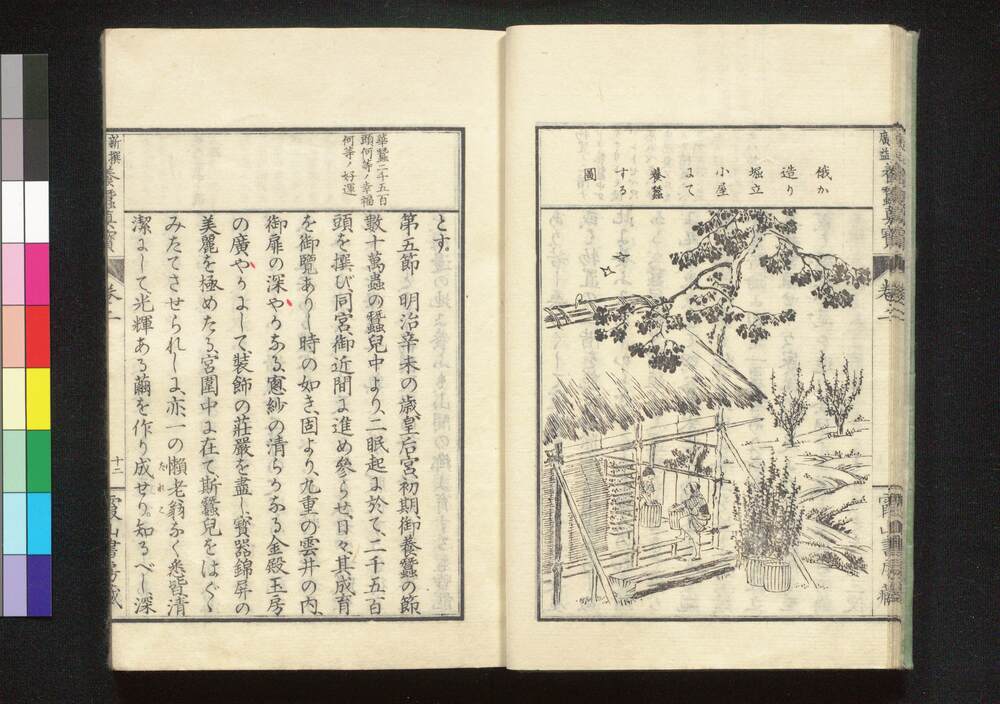 幟か
造り
堀立
小屋
にて
養蚕
する
圖
廣益
巻
霞山書房藏
華蠶二千五百
頭何等ノ幸福
何等ノ好運
とす
第五節 明治辛未の歳皇后宮初期御養蠶の節
數十萬蟲の蠶兒中より二眠起に於て二千五百
頭を撰び同宮御近間に進め參らせ日々其成育
を御覽ありし時の如き固より九重の雲井の内
御扉の深やかなる窓紗の清らかなる金殿玉房
の廣やかにして裝飾の莊嚴を盡し寶器錦屏の
美麗を極めたる宮闈中に在て斯蠶兒をはぐく
みたてさせられしに亦一の懶老翁なく悉皆清
潔にして光輝ある繭を作り成せり知るべし深
新撰養蠶眞寶
卷二
十二
霞山書房藏